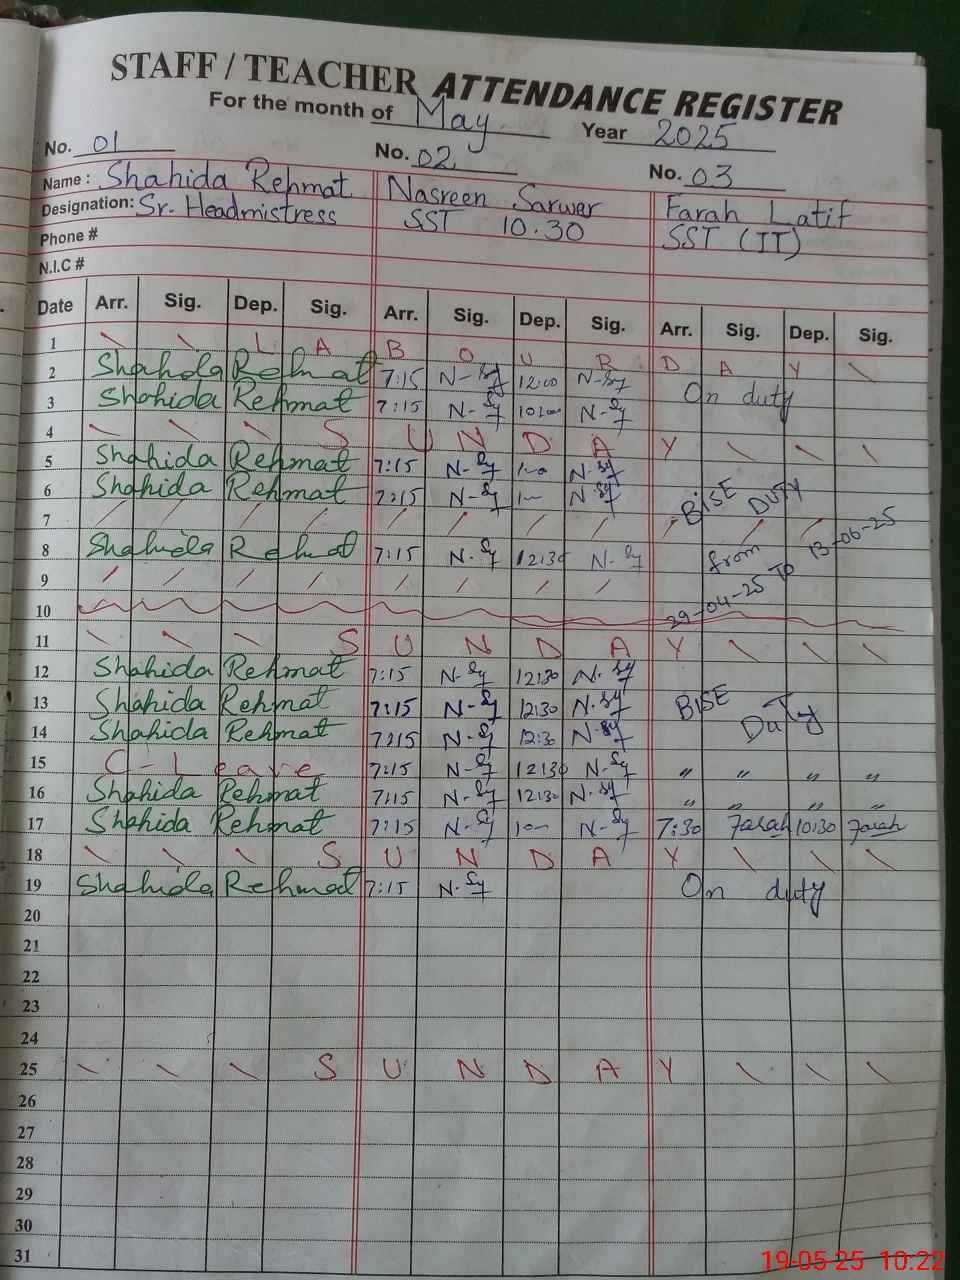 STAFF / TEACHER ATTENDANCE REGISTER
For the month of May Year 2025
No. 01 No. 02 No. 03
Name : Shahida Rehmat Nasreen Sarwer Farah Latif
Designation: Sr. Headmistress SST 10.30 SST (IT)
Phone #
N.I.C #
Date Arr. Sig. Dep. Sig. Arr. Sig. Dep. Sig. Arr. Sig. Dep. Sig.
1 \ \ L A B O U R D A Y \
2 Shahida Rehmat 7:15 N-Sy 12:00 N-Sy On duty
3 Shahida Rehmat 7:15 N-Sy 10:00 N-Sy
4 \ \ \ S U N D A Y \ \ \
5 Shahida Rehmat 7:15 N-Sy 1-0 N-Sy
6 Shahida Rehmat 7:15 N-Sy 1- N-Sy BISE DUTY
7 / / / / / / / / / / /
8 Shahida Rehmat 7:15 N-Sy 12:30 N-Sy from 29-04-25 To 13-06-25
9 / / / / / / / /
10
11 \ \ \ S U N D A Y \ \ \
12 Shahida Rehmat 7:15 N-Sy 12:30 N-Sy
13 Shahida Rehmat 7:15 N-Sy 12:30 N-Sy BISE Duty
14 Shahida Rehmat 7:15 N-Sy 12:30 N-Sy
15 C-Leave 7:15 N-Sy 12:30 N-Sy " " " "
16 Shahida Rehmat 7:15 N-Sy 12:30 N-Sy " " " "
17 Shahida Rehmat 7:15 N-Sy 10- N-Sy 7:30 Farah 10:30 Farah
18 \ \ \ S U N D A Y \ \ \
19 Shahida Rehmat 7:15 N-Sy On duty
20
21
22
23
24
25 \ \ \ S U N D A Y \ \ \
26
27
28
29
30
31
19-05-25 10:22